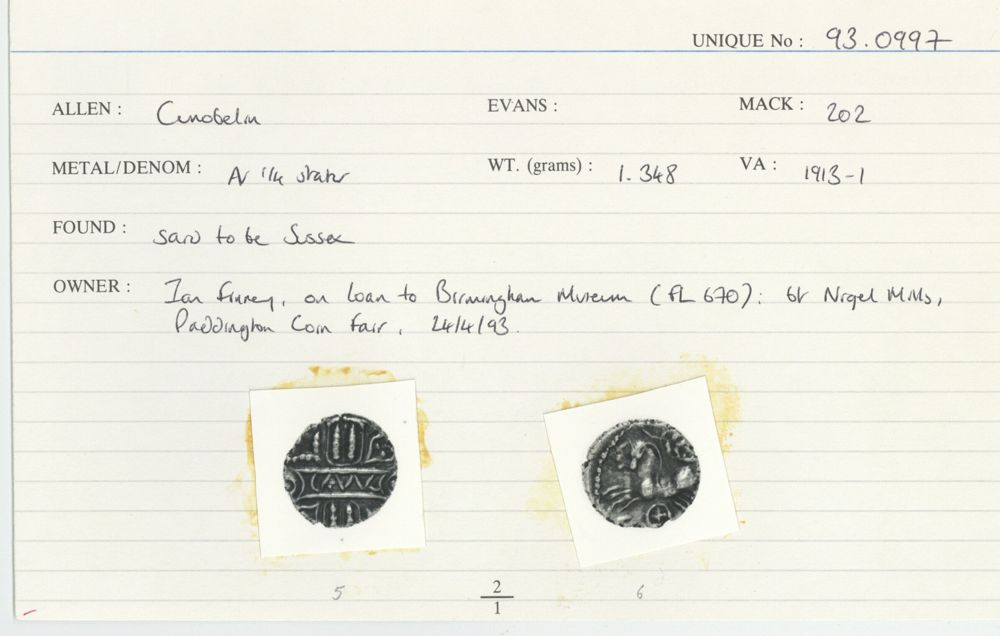 UNIQUE No : 93.0997
ALLEN : Cunobelin EVANS : MACK : 202
METAL/DENOM : AV 1/4 stater WT. (grams) : 1.348 VA : 1913-1
FOUND : said to be Sussex
OWNER : Ian Finney, on loan to Birmingham Museum (FL 670): bt Nigel Mills,
Paddington Coin Fair, 24/4/93.
5 2/1 6